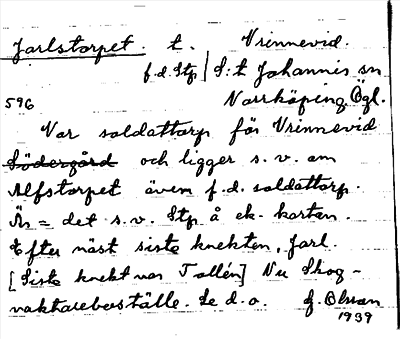 Jarlstorpet. t. Vrinnevid.
f.d. Stp / S:t Johannis sn
596 Norrköping, Ögl.
Var soldattorp för Vrinnevid
Södergård och ligger s.v. om
Alfstorpet även f.d. soldattorp.
Är = det s.v. Stp å ek-kartan.
Efter näst siste knekten, Jarl.
[Siste knekt var Tallén] Nu Skog-
vaktareboställe. Se d.o. G. Olsson
1939